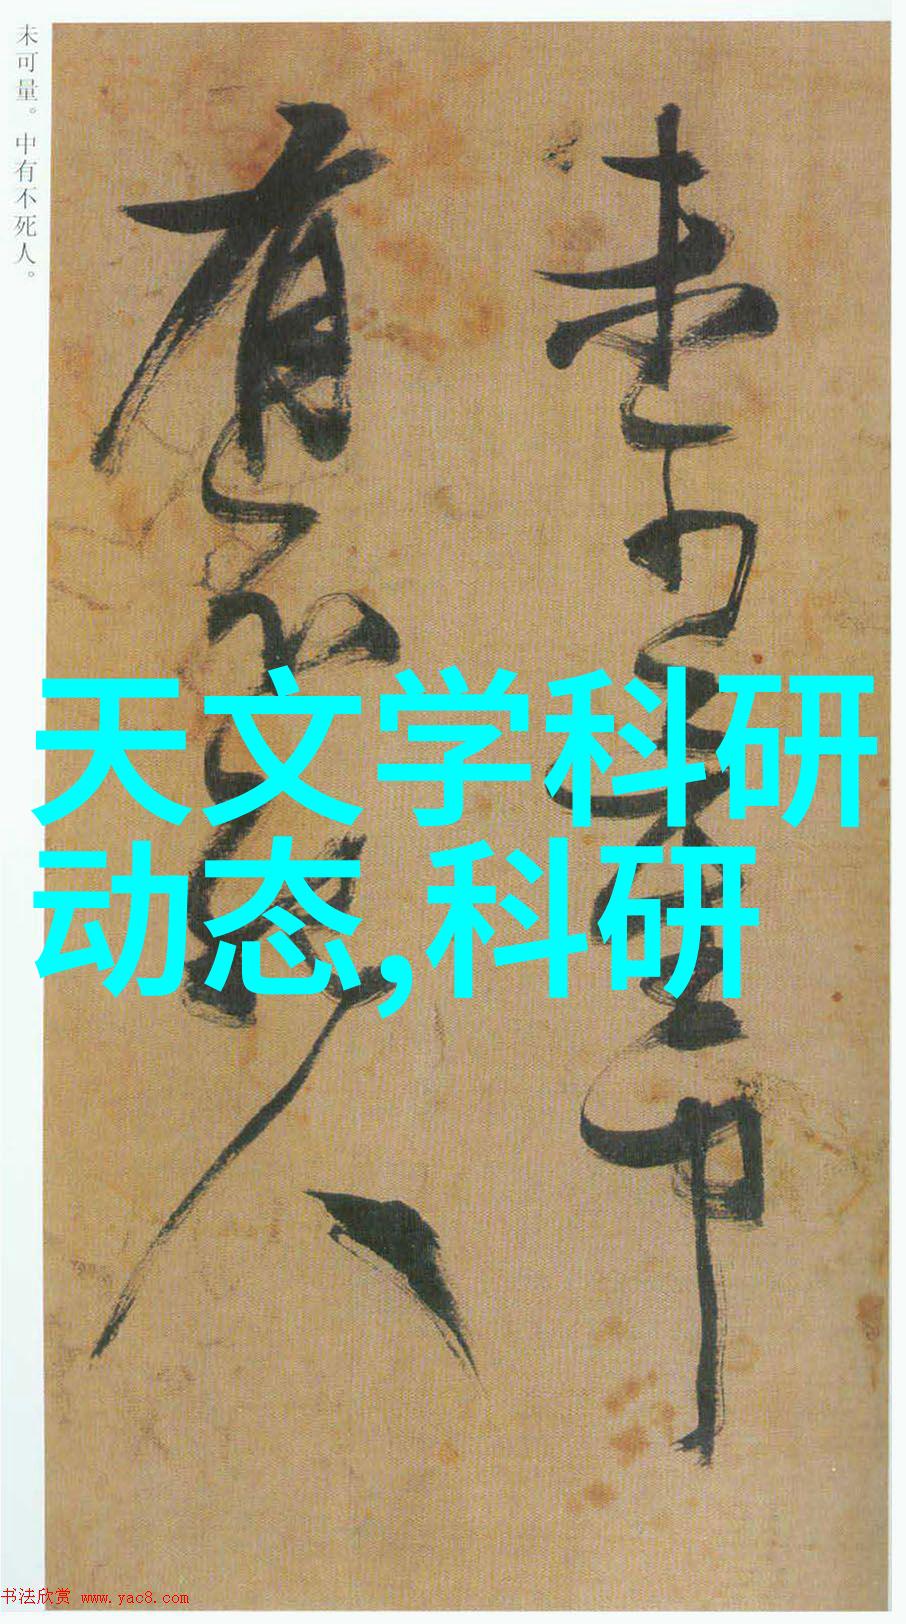 未可量。中有不死人。
未可量中
有不死人
天文学科研
动态,科研
书法欣赏 www.yac8.com